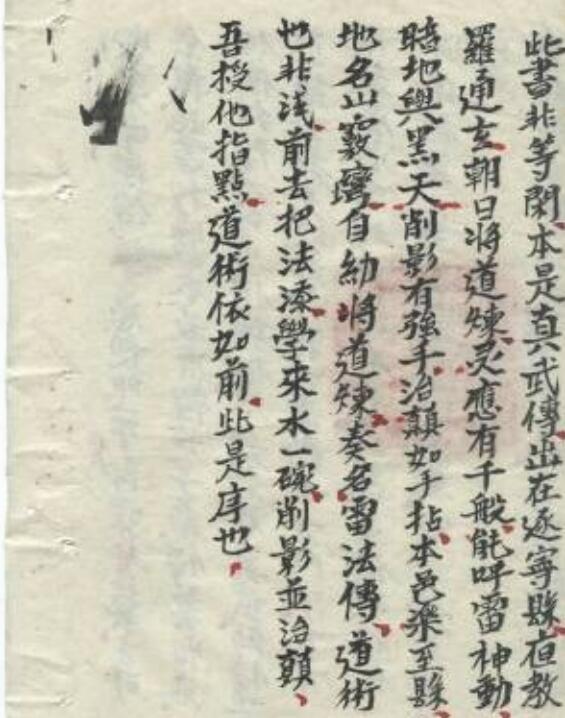 此書非等閑本是真武傳出在逐寧縣夜教
羅通玄朝日將道煉灵應有千般能呼雷神動
暗地與黑天削影有強手治顛如手拈本邑樂至縣
地名山窽灣自幼將道煉奏名雷法傳道術
也非浅前去把法添學來水一碗削影並治顛
吾授他指點道術依如前此是序也